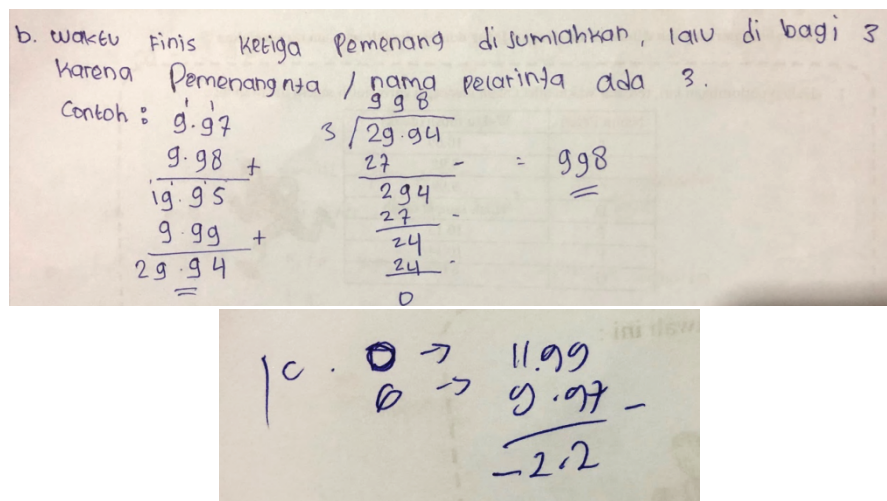 b. waktu Finis ketiga Pemenang disumlahkan, lalu di bagi 3
karena Pemenangnya / nama pelarinya ada 3.
Contoh : 9.97
9.98 +
19.95
9.99 +
29.94
998
3 / 29.94
27 -
294
27 -
24
24 -
0
= 998
1c. D → 11.99
6 → 9.97 -
-2.2